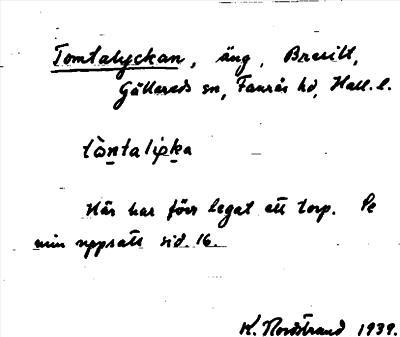 Tomtalyckan, äng, Bresilt,
Gällareds sn, Faurås hd, Hall. l.
tòntalipka
Här har förr legat ett torp. Se
min uppsats sid. 16.
K. Nordstrand 1939.